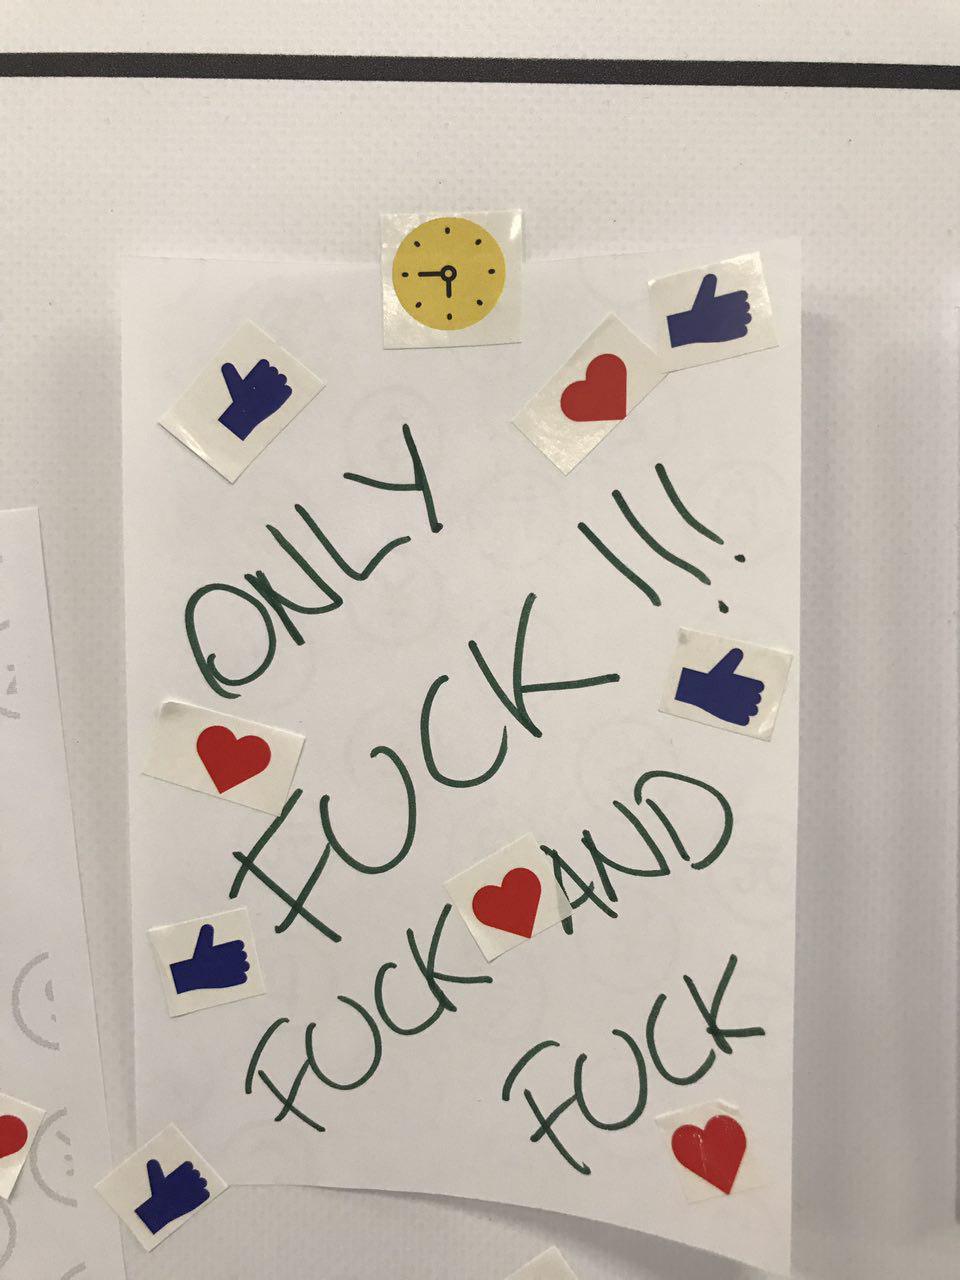 ONLY
FUCK !!!
FUCK AND
FUCK